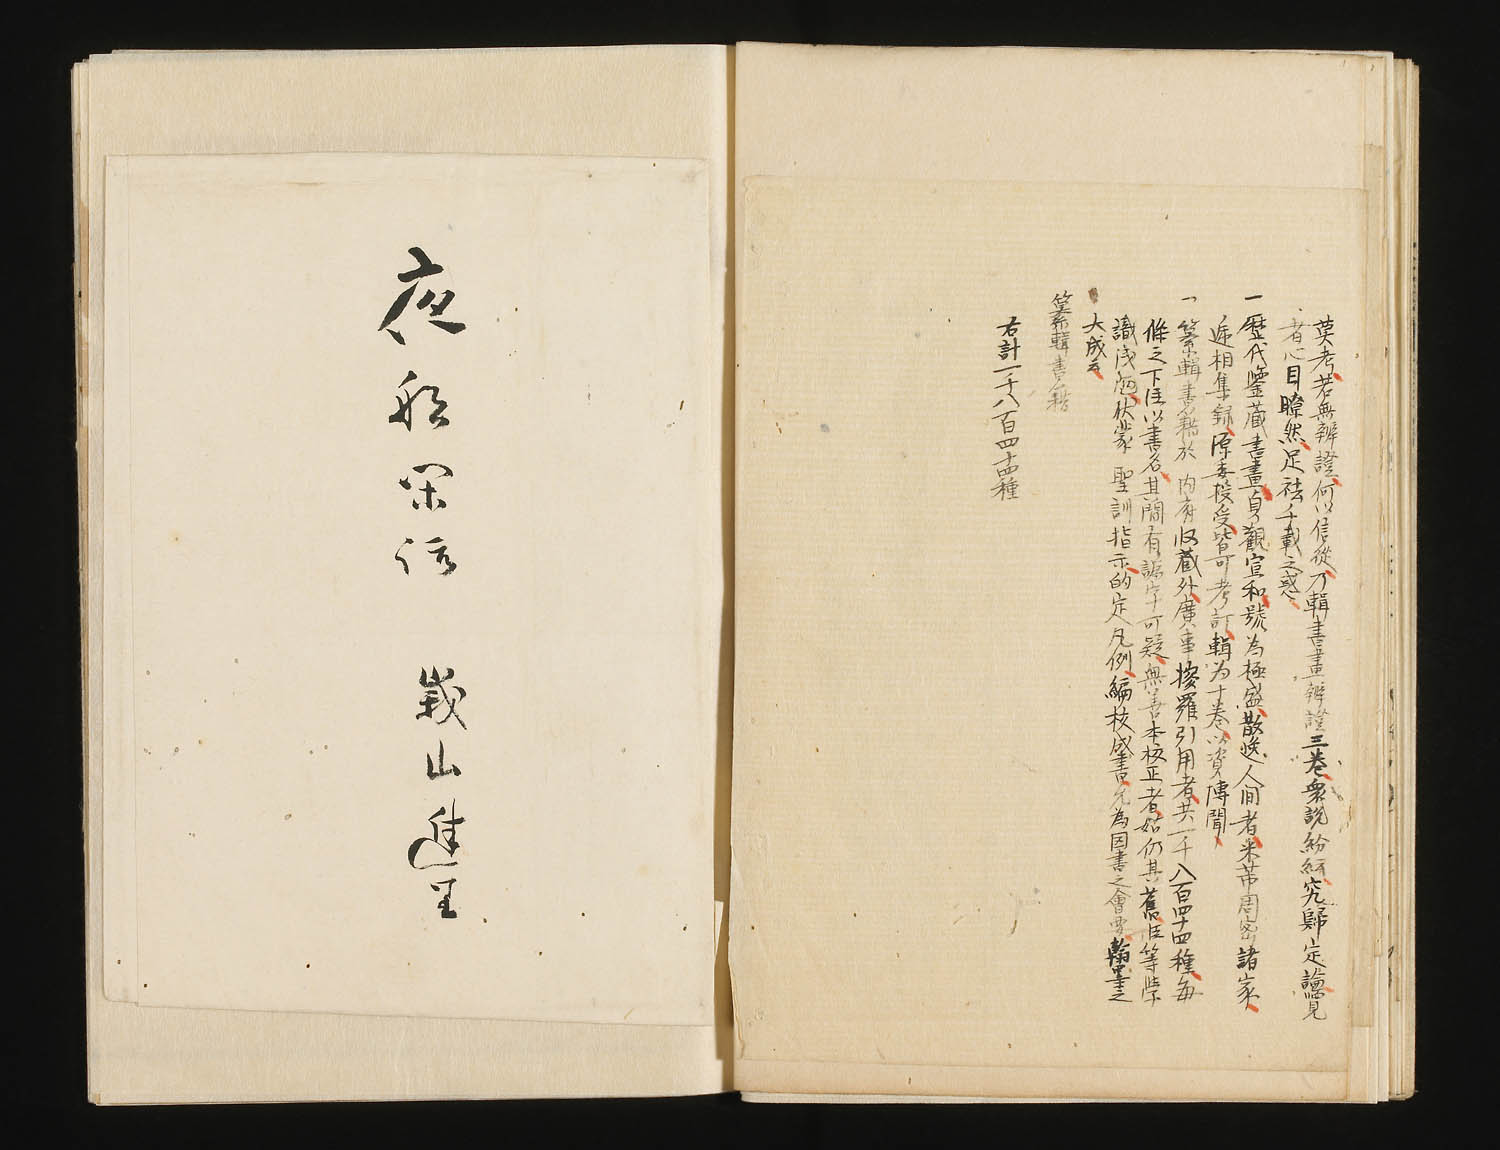 莫考若無辨證何以信從乃輯書畫辨證三卷衆說紛紜究歸定論見
者心目瞭然足祛千載之惑
一歷代鑒藏書畫貞觀宣和號為極盛散逸人間者米芾周密諸家
遞相集錄源委授受皆可考訂輯為十卷以資傳聞
一纂輯書籍於內府収藏外廣事搜羅引用者共一千八百四十四種每
條之下注以書名其間有譌字可疑無善本校正者姑仍其舊臣等學
識淺陋伏蒙聖訓指示的定凡例編校成書允為図書之會要翰墨之
大成云
纂輯書籍
右計一千八百四十四種
夜船閑話